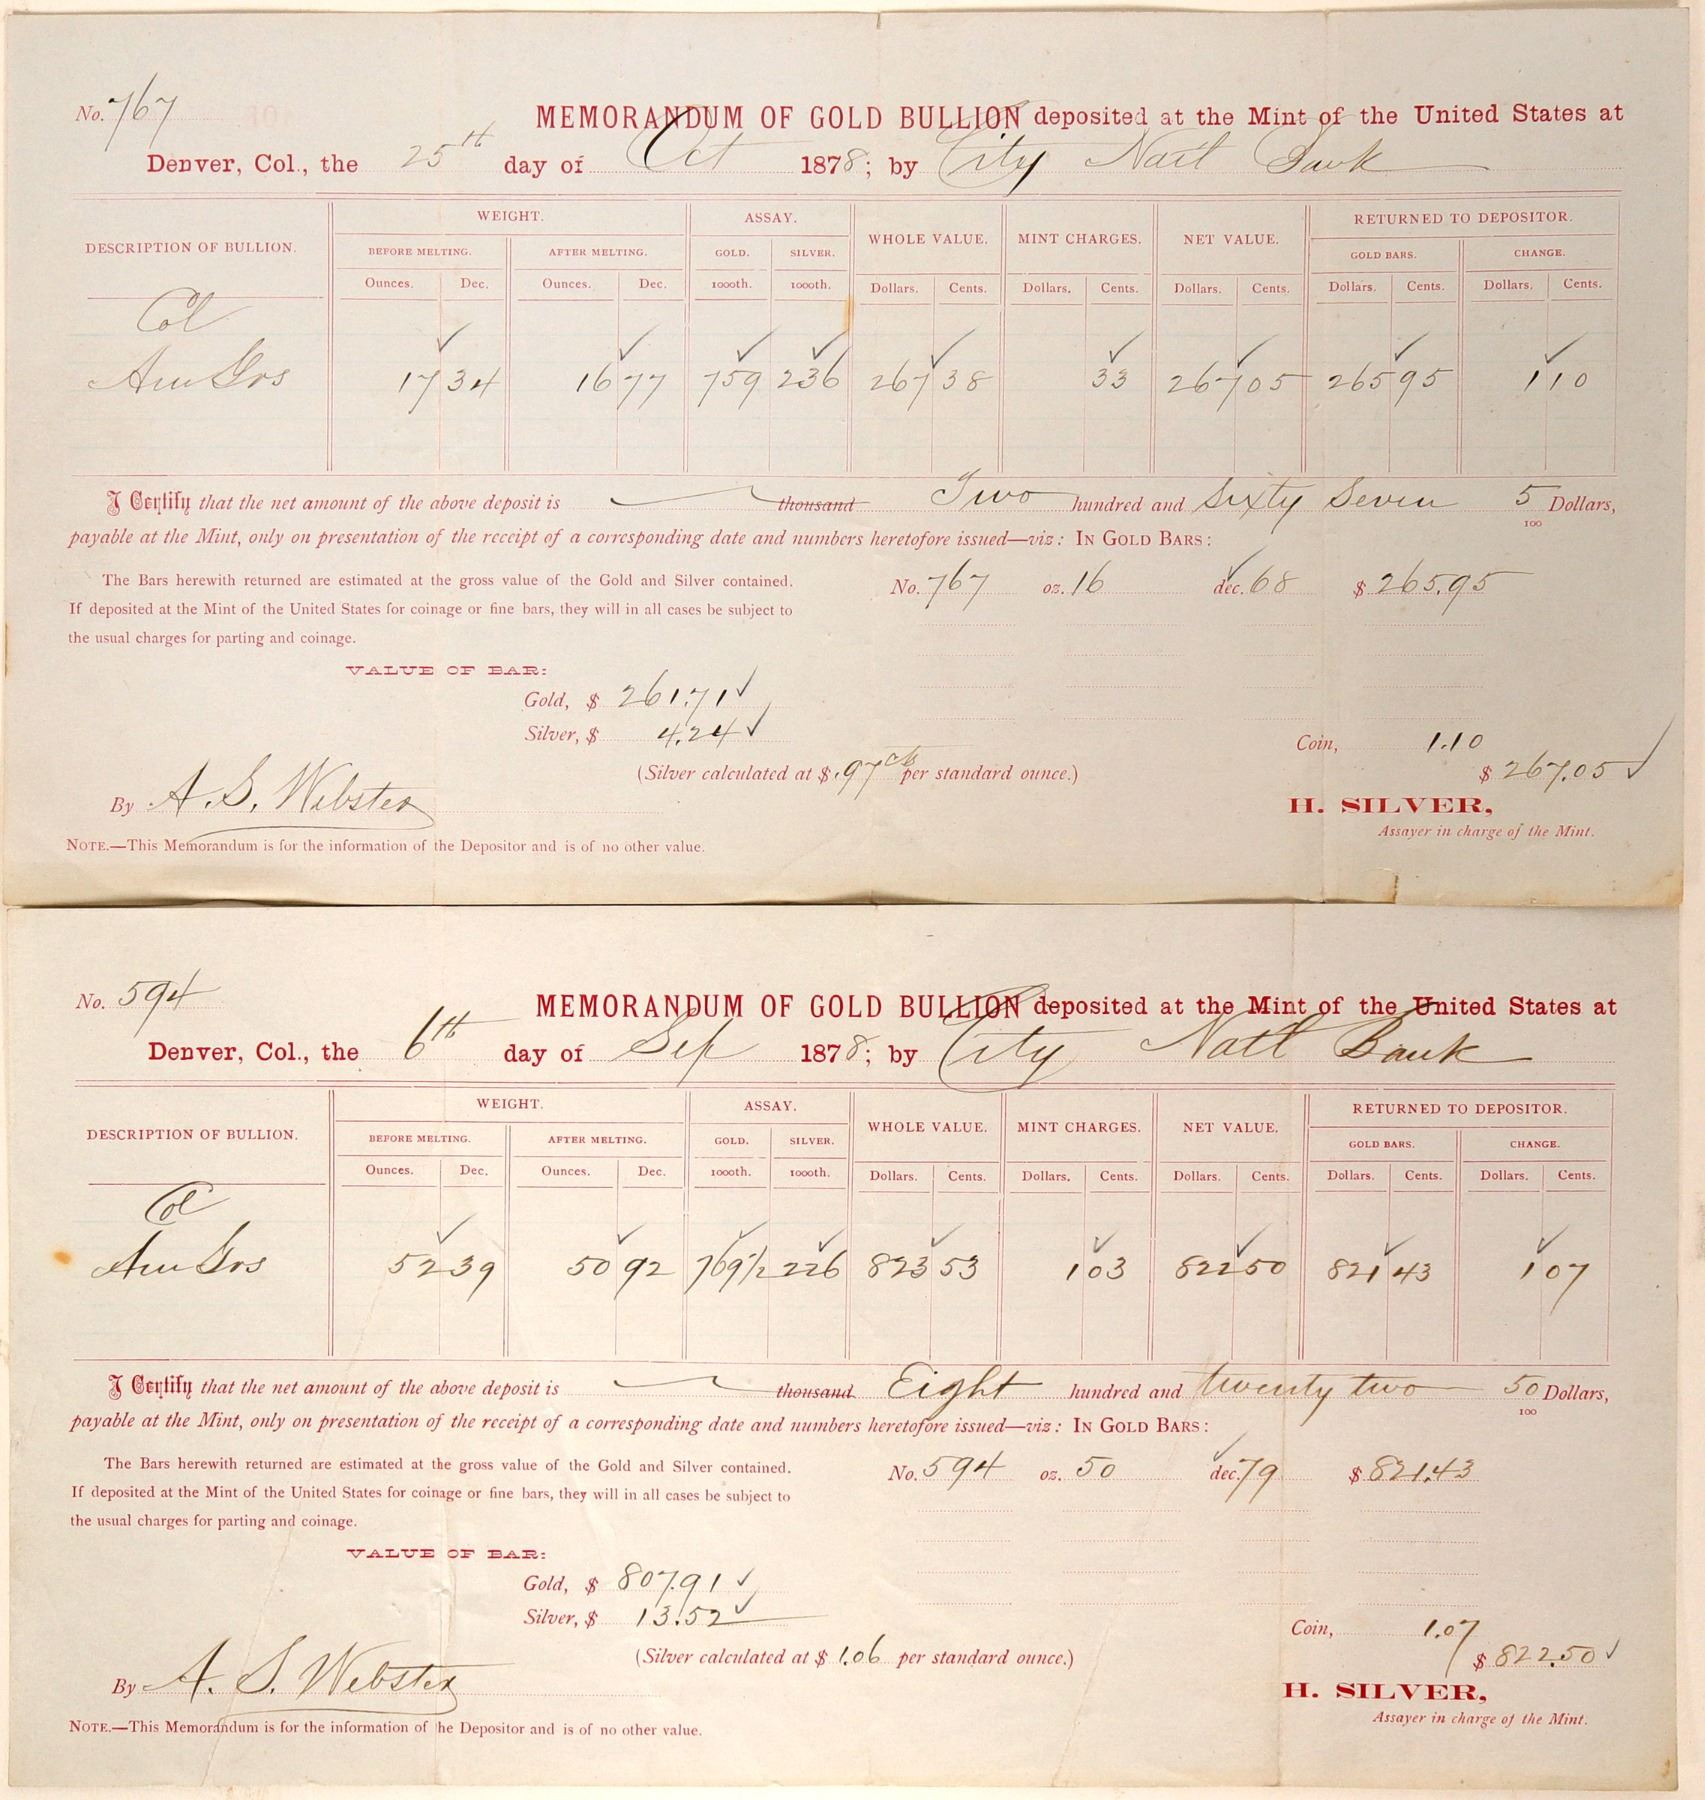 No. 767
MEMORANDUM OF GOLD BULLION deposited at the Mint of the United States at
Denver, Col., the 25th day of Oct 1878; by City Natl Bank
DESCRIPTION OF BULLION. WEIGHT. ASSAY. WHOLE VALUE. MINT CHARGES. NET VALUE. RETURNED TO DEPOSITOR.
BEFORE MELTING. AFTER MELTING. GOLD. SILVER. GOLD BARS. CHANGE.
Ounces. Dec. Ounces. Dec. 1000th. 1000th. Dollars. Cents. Dollars. Cents. Dollars. Cents. Dollars. Cents. Dollars. Cents.
Col
Am Grs 17 34 16 77 759 236 267 38 33 267 05 265 95 1 10
I Certify that the net amount of the above deposit is thousand Two hundred and Sixty Seven 5/100 Dollars,
payable at the Mint, only on presentation of the receipt of a corresponding date and numbers heretofore issued—viz: IN GOLD BARS:
The Bars herewith returned are estimated at the gross value of the Gold and Silver contained.
If deposited at the Mint of the United States for coinage or fine bars, they will in all cases be subject to
the usual charges for parting and coinage.
No. 767 oz. 16 dec. 68 $ 265.95
VALUE OF BAR:
Gold, $ 261.71
Silver, $ 4.24
(Silver calculated at $ .97 cts per standard ounce.)
Coin, 1.10
$ 267.05
By A. S. Webster
H. SILVER,
Assayer in charge of the Mint.
NOTE.—This Memorandum is for the information of the Depositor and is of no other value.
No. 594
MEMORANDUM OF GOLD BULLION deposited at the Mint of the United States at
Denver, Col., the 6th day of Sep 1878; by City Natl Bank
DESCRIPTION OF BULLION. WEIGHT. ASSAY. WHOLE VALUE. MINT CHARGES. NET VALUE. RETURNED TO DEPOSITOR.
BEFORE MELTING. AFTER MELTING. GOLD. SILVER. GOLD BARS. CHANGE.
Ounces. Dec. Ounces. Dec. 1000th. 1000th. Dollars. Cents. Dollars. Cents. Dollars. Cents. Dollars. Cents. Dollars. Cents.
Col
Am Grs 52 39 50 92 769 1/2 226 823 53 1 03 822 50 821 43 1 07
I Certify that the net amount of the above deposit is thousand Eight hundred and twenty two 50/100 Dollars,
payable at the Mint, only on presentation of the receipt of a corresponding date and numbers heretofore issued—viz: IN GOLD BARS:
The Bars herewith returned are estimated at the gross value of the Gold and Silver contained.
If deposited at the Mint of the United States for coinage or fine bars, they will in all cases be subject to
the usual charges for parting and coinage.
No. 594 oz. 50 dec. 79 $ 821.43
VALUE OF BAR:
Gold, $ 807.91
Silver, $ 13.52
(Silver calculated at $ 1.06 per standard ounce.)
Coin, 1.07
$ 822.50
By A. S. Webster
H. SILVER,
Assayer in charge of the Mint.
NOTE.—This Memorandum is for the information of the Depositor and is of no other value.